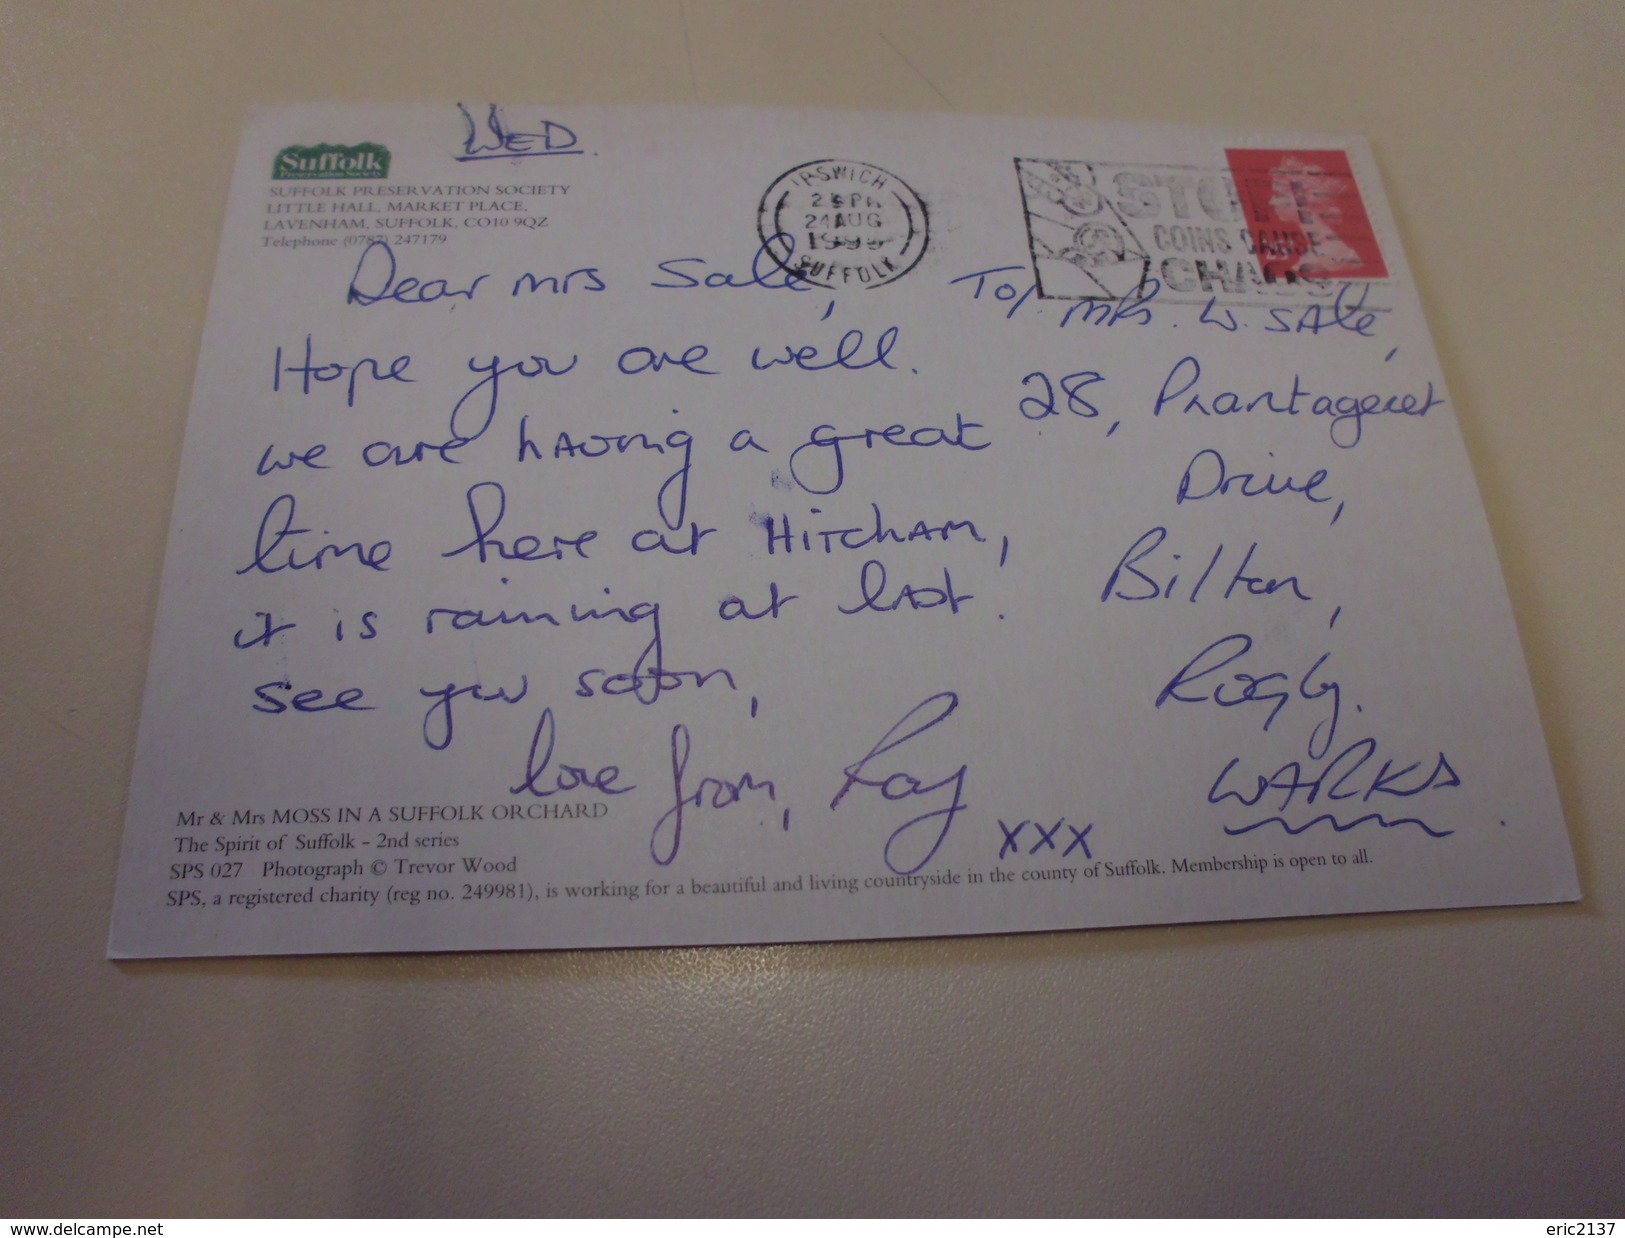 WED.
Suffolk
Preservation Society
SUFFOLK PRESERVATION SOCIETY
LITTLE HALL, MARKET PLACE,
LAVENHAM, SUFFOLK, CO10 9QZ
Telephone (0787) 247179
Dear Mrs Sale,
Hope you are well.
we are having a great
time here at Hitcham,
it is raining at last.
see you soon,
love from, Ray
xxx
IPSWICH
24 AUG
SUFFOLK
STOP
COINS CAUSE
CHAOS
To/ Mrs. W. Sale,
28, Plantagenet
Drive,
Bilton,
Rugby.
WARKS.
Mr & Mrs MOSS IN A SUFFOLK ORCHARD
The Spirit of Suffolk - 2nd series
SPS 027 Photograph © Trevor Wood
SPS, a registered charity (reg no. 249981), is working for a beautiful and living countryside in the county of Suffolk. Membership is open to all.
www.delcampe.net
eric2137